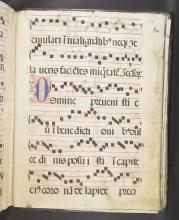 emulari i malignātib' neq3 ze
laueris faciētes iniqtatē. Seclor.
Domine preveni sti e
ū i bene dicti oni b' dul
ce di nis posu i sti i capite
ei' coro nā de lapide preci